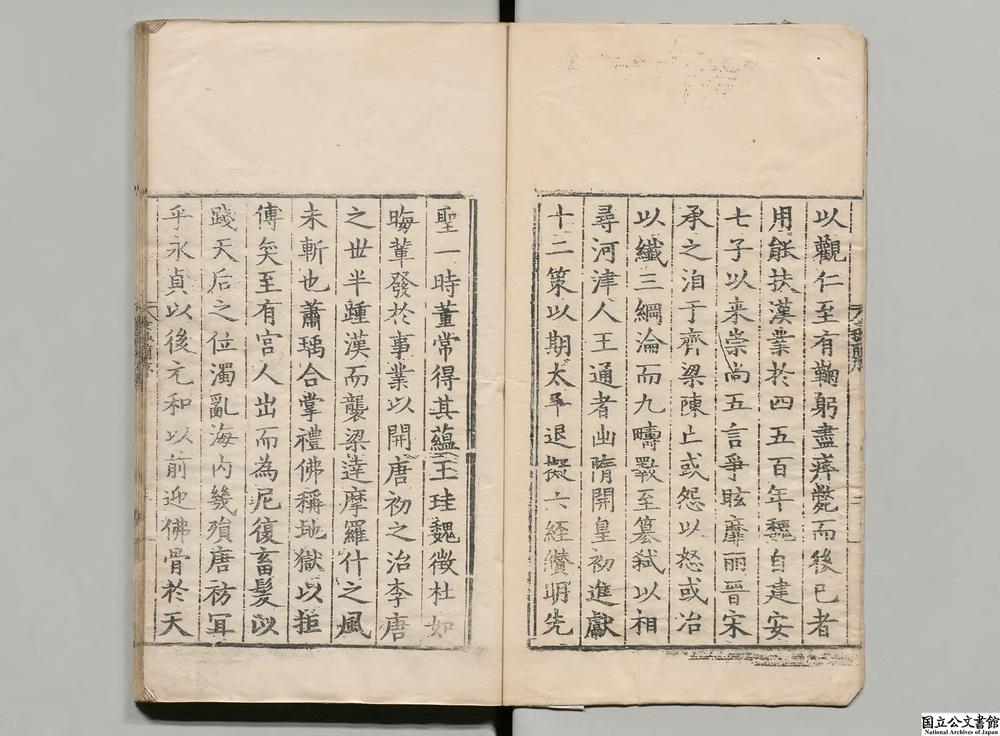 以觀仁至有鞠躬盡瘁斃而後已者
用能扶漢業於四五百年魏自建安
七子以来崇尚五言爭眩靡丽晋宋
承之洎于齊梁陳亡或怨以怒或冶
以纖三綱淪而九疇斁至篡弒以相
尋河津人王通者出隋開皇初進獻
十二策以期太平退擬六經纘明先
聖一時董常得其蘊王珪魏徵杜如
晦輩發於事業以開唐初之治李唐
之世半踵漢而襲梁達摩羅什之風
未斬也蕭瑀合掌禮佛稱地獄以拒
傅奕至有宮人出而為尼復畜髮以
踐天后之位濁亂海内幾殞唐祊冝
乎永貞以後元和以前迎佛骨於天
国立公文書館
National Archives of Japan